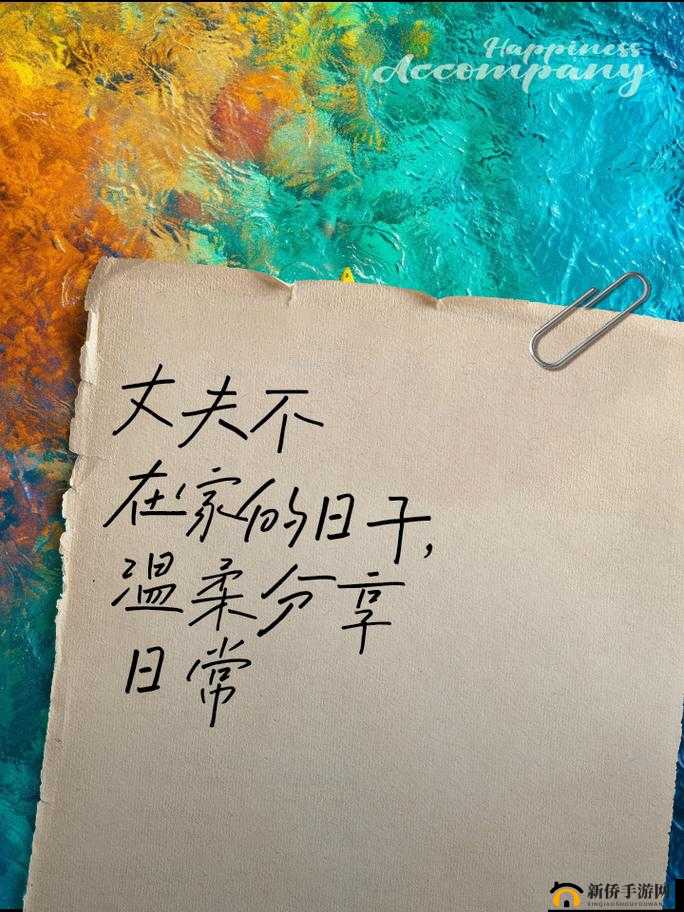 Happiness
Accompany
丈夫不
在家的日子,
温柔分享
日常
新侨手游网
XINQIAOSHOUYOUWANG